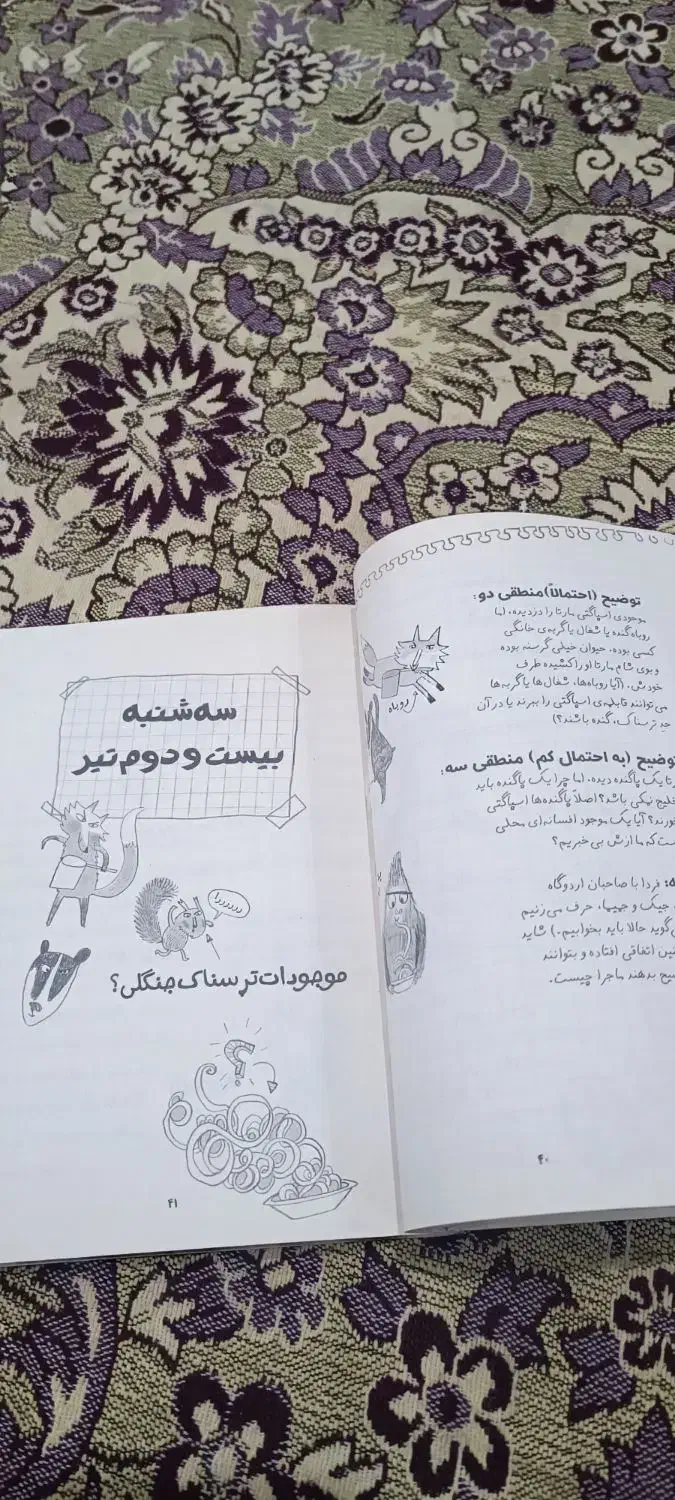 توضیح (احتمالاً) منطقی دو:
موجودی اسپاگتی مارتا را دزدیده، اما
روباه گنده یا شغال یا گربه‌ی خانگی
کسی بوده. حیوان خیلی گرسنه بوده
و بوی شام مارتا او را کشیده طرف
خودش. (آیا روباه‌ها، شغال‌ها یا گربه‌ها
می‌توانند قابلمه‌ی اسپاگتی را ببرند یا در آن
حد ترسناک، گنده باشند؟)
روباه
توضیح (به احتمال کم) منطقی سه:
یک پاگنده دیده. اما چرا یک پاگنده باید
خلیج نیکی باشد؟ اصلاً پاگنده‌ها اسپاگتی
خورند؟ آیا یک موجود افسانه‌ای محلی
ست که ما ازش بی‌خبریم؟
فردا با صاحبان اردوگاه
جیک و جیما، حرف می‌زنیم
گوید حالا باید بخوابیم.) شاید
اتفاقی افتاده و بتوانند
بدهند ماجرا چیست.
۴۰
سه‌شنبه
بیست و دوم تیر
ررررررا
موجودات ترسناک جنگلی؟
؟
۴۱